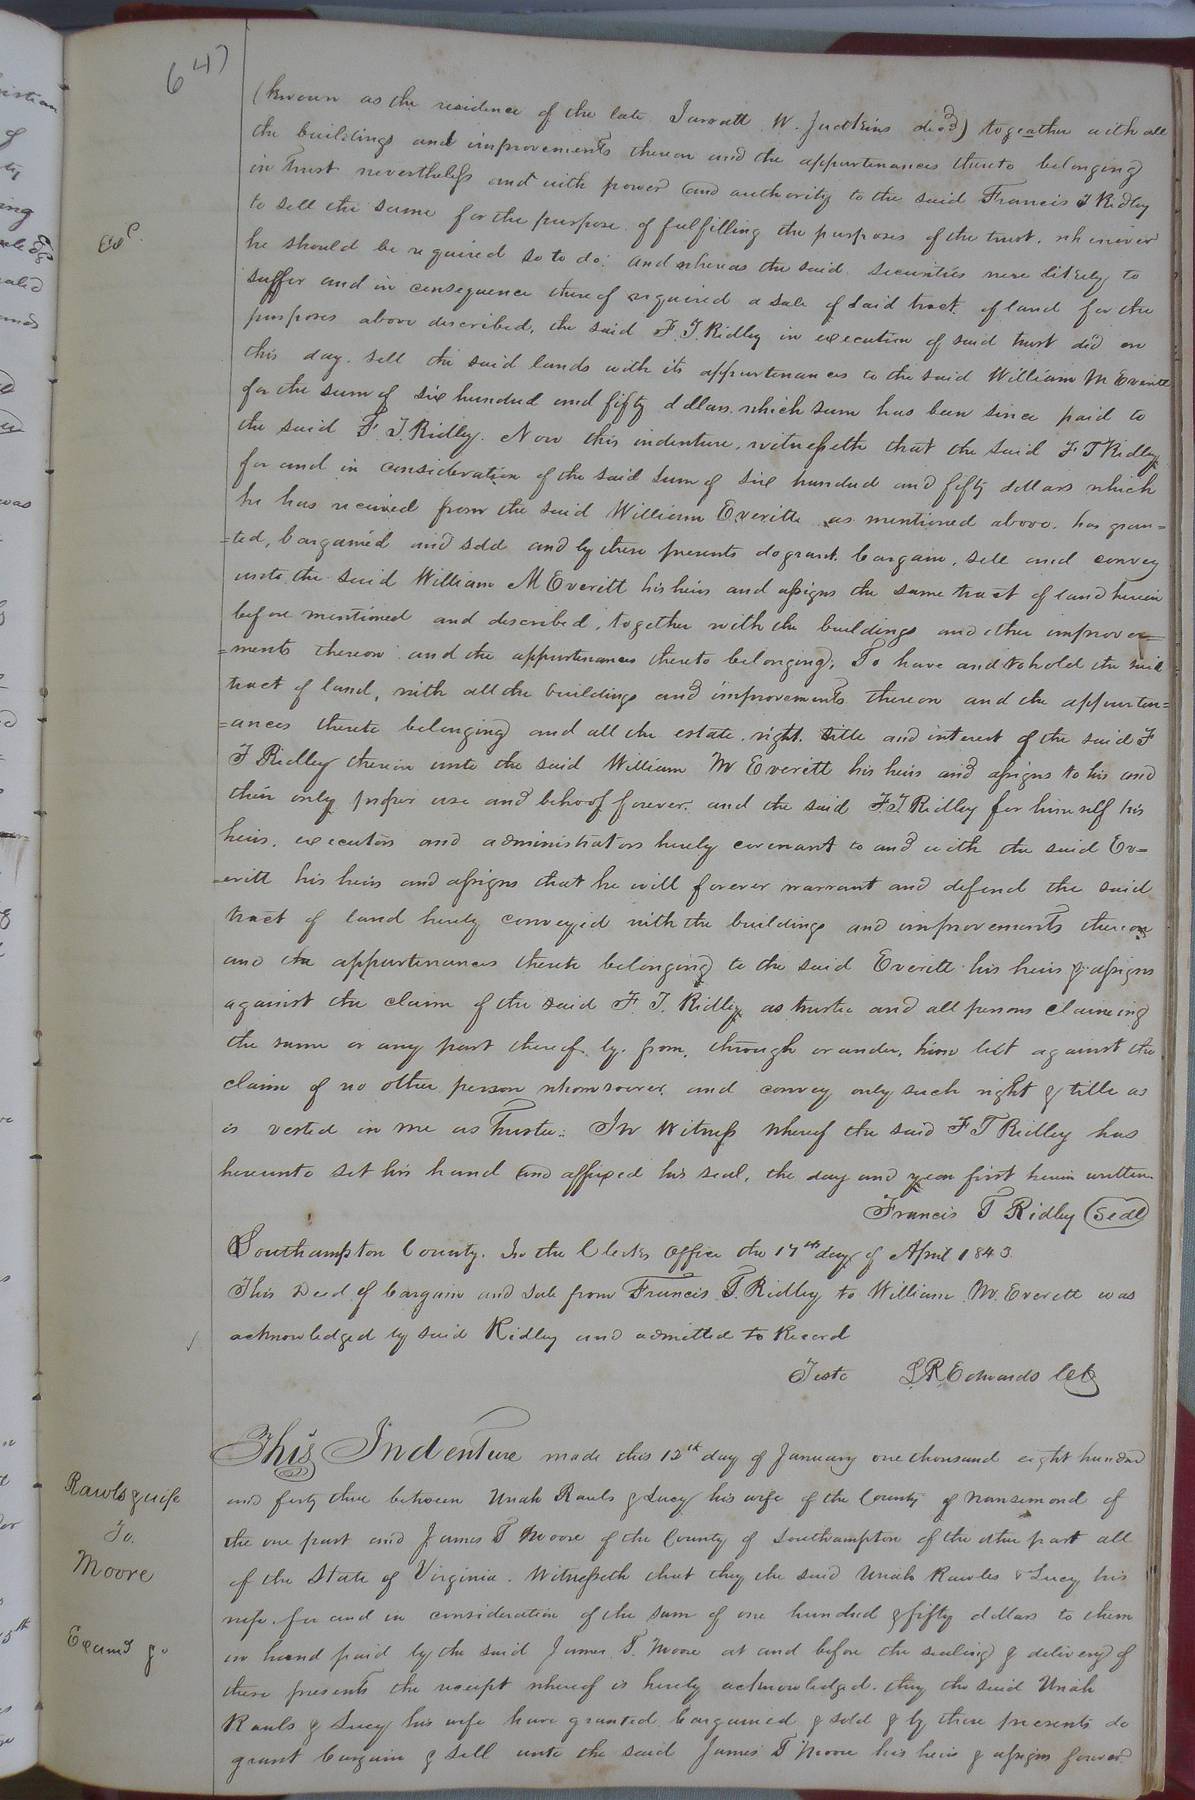 647
(known as the residence of the late Jarratt W. Judkins decd) together with all
the buildings and improvements thereon and the appurtenances thereto belonging
in trust nevertheless and with power and authority to the said Francis T Ridley
to sell the same for the purpose of fulfilling the purposes of the trust, whenever
he should be required so to do: and whereas the said securities were likely to
suffer and in consequence thereof required a sale of said tract of land for the
purposes above described, the said F. T. Ridley in execution of said trust did on
this day sell the said lands with its appurtenances to the said William M Everitt
for the sum of six hundred and fifty dollars which sum has been since paid to
the said F. T. Ridley. Now this indenture, witnesseth that the said F T Ridley
for and in consideration of the said sum of six hundred and fifty dollars which
he has received from the said William Everitt as mentioned above. has gran=
=ted, bargained and sold and by these presents do grant, bargain, sell and convey
unto the said William M Everitt his heirs and assigns the same tract of land herein
before mentioned and described, together with the buildings and other improve=
=ments thereon and the appurtenances thereto belonging; To have and to hold the said
tract of land, with all the buildings and improvements thereon and the appurten=
=ances thereto belonging and all the estate, right, title and interest of the said F
T Ridley therein unto the said William M Everitt his heirs and assigns to his and
their only proper use and behoof forever. and the said F. T. Ridley for himself his
heirs, executors and administrators hereby covenant to and with the said Ev=
=eritt his heirs and assigns that he will forever warrant and defend the said
tract of land hereby conveyed with the buildings and improvements thereon
and the appurtenances thereto belonging to the said Everitt his heirs & assigns
against the claim of the said F. T. Ridley as trustee and all persons claiming
the same or any part thereof by, from, through or under, him but against the
claim of no other person whomsoever, and convey only such right & title as
is vested in me as Trustee: In Witness Whereof the said F T Ridley has
hereunto set his hand and affixed his seal, the day and year first herein written
Francis T Ridley (Seal)
Southampton County. In the Clerks Office the 17th day of April 1843
This Deed of bargain and Sale from Francis T. Ridley to William M. Everett was
acknowledged by said Ridley and admitted to Record
Teste L R Edwards Clk
This Indenture made this 12th day of January one thousand eight hundred
Rawls & wife
To.
Moore
Examd &
and forty three between Uriah Rawls & Lucy his wife of the County of Nansemond of
the one part and James T Moore of the County of Southampton of the other part all
of the State of Virginia. Witnesseth that they the said Uriah Rawles & Lucy his
wife. for and in consideration of the sum of one hundred & fifty dollars to them
in hand paid by the said James T. Moore at and before the sealing & delivery of
these presents the receipt whereof is hereby acknowledged. they the said Uriah
Rawls & Lucy his wife have granted bargained & sold & by these presents do
grant bargain & sell unto the said James T Moore his heirs & assigns forever